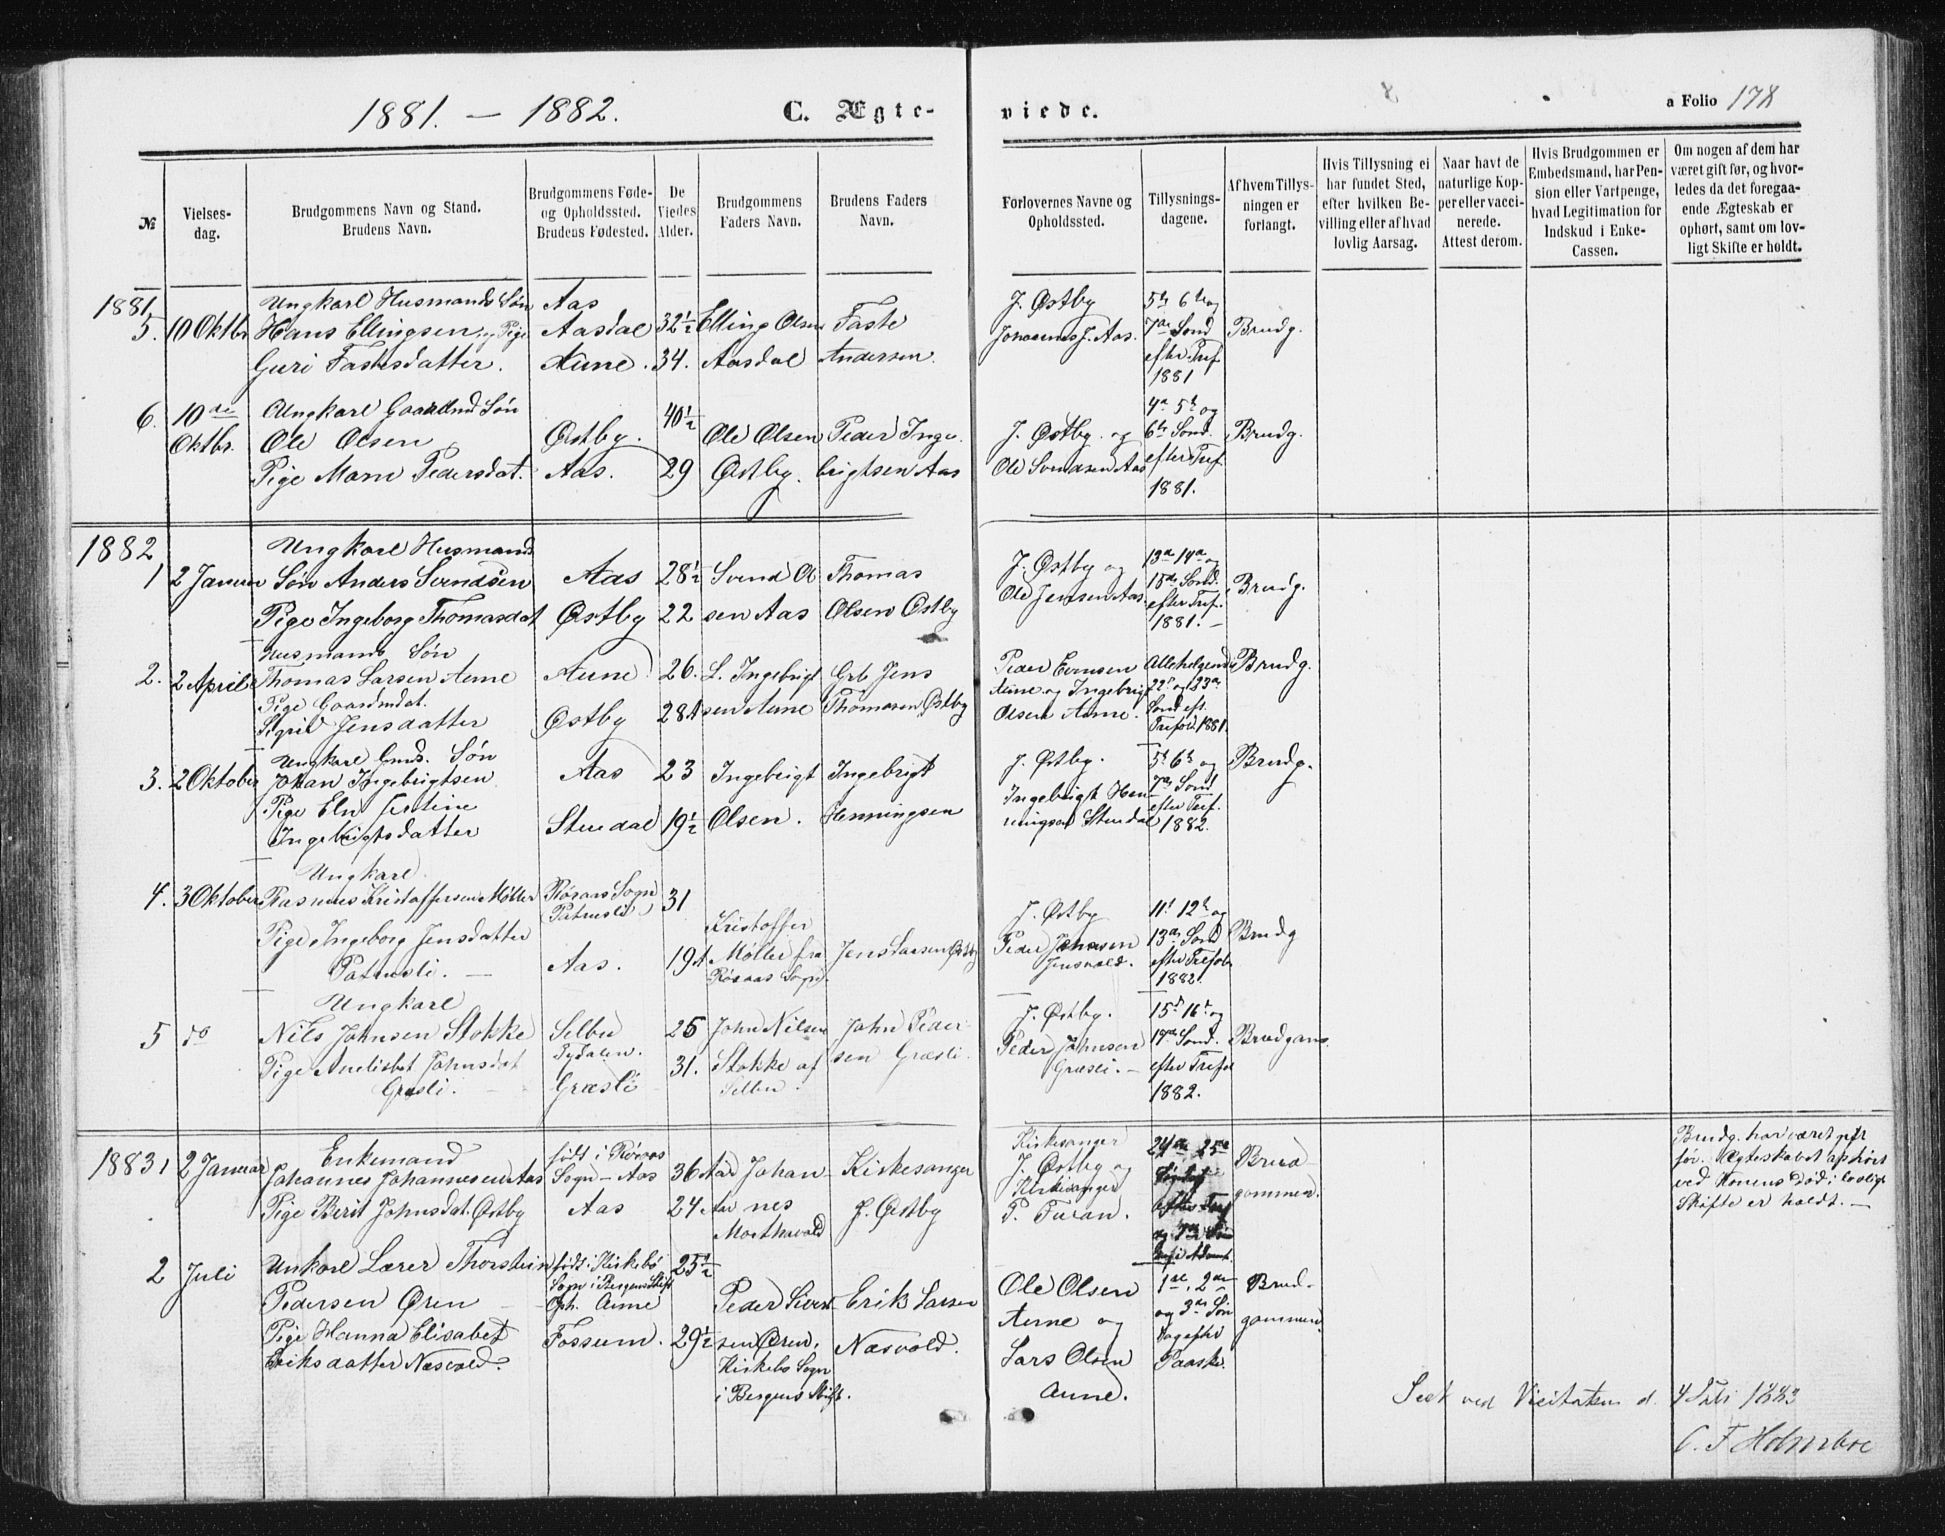 1881. — 1882.
C. Ægte-
viede.
a Folio 178
№
Vielses-
dag.
Brudgommens Navn og Stand.
Brudens Navn.
Brudgommens Føde-
og Opholdssted.
Brudens Fødested.
De
Viedes
Alder.
Brudgommens
Faders Navn.
Brudens Faders
Navn.
Forlovernes Navne og
Opholdssted.
Tillysnings-
dagene.
Af hvem Tillys-
ningen er
forlangt.
Hvis Tillysning ei
har fundet Sted,
efter hvilken Be-
villing eller af hvad
lovlig Aarsag.
Naar havt de
naturlige Kop-
per eller vacci-
nerede.
Attest derom.
Hvis Brudgommen er
Embedsmand, har Pen-
sion eller Vartpenge,
hvad Legitimation for
Indskud i Enke-
Cassen.
Om nogen af dem har
været gift før, og hvor-
ledes da det foregaa-
ende Ægteskab er
ophørt, samt om lov-
ligt Skifte er holdt.
1881.
5. 10 Oktbr
Ungkarl Husmands Søn
Hans Ellingsen og Pige
Guri Fastesdatter.
Aas
Aasdal
Aune.
32½
34.
Elling Olsen
Aasdal
Faste
Andersen
J. Østby
Jonesenes J. Aas.
5te 6te og
7de Sønd
efter Tref.
1881
Brudg.
6. 10de
Oktbr.
Ungkarl Gaardmd Søn
Ole Olsen
Pige Marn Pedersdat.
Østby.
Aas.
40½
29
Ole Olsen
Østby.
Peder Inge
brigtsen Aas
J. Østby. og
Ole Svendsen Aas
4de 5te og
6te Sønd.
efter Tref.
1881.
Brudg.
1882
1 2 Januar
Ungkarl Husmand
Søn Anders Svendsen
Pige Ingeborg Thomasdat
Aas
Østby
28½
22
Svend Ol
sen Aas
Thomas
Olsen Østby
J. Østby og
Ole Jensen Aas.
13de 14de og
15de Sønd.
efter Tref.
1881.
Brudg.
2. 2 April
Husmands Søn
Thomas Larsen Aune
Pige Gaardmdat.
Sigrid Jensdatter
Aune
Østby
26.
28
L. Ingebrigt
sen Aune
Grb Jens
Thomasen Østby
Peder Evensen
Aune og Ingebrigt
Olsen Aune.
Allehelgend
22de og 23de
Sønd eft.
Trefold. 1881.
Brudg.
3. 2 Oktober
Ungkarl Gmds. Søn
Johan Ingebrigtsen
Pige Eln
Ingebrigtsdatter
Aas
Stuedal
23
19½
Ingebrigt
Olsen.
Ingebrigt
Henningsen
J. Østby.
Ingebrigt Hen
ningsen Stuedal
5te 6te og
7de Sønd
efter Tref.
1882.
Brudg.
4. 3 Oktober
Ungkarl.
Rasmus Kristoffersen Møller
Pige Ingeborg Jensdatter
Patrusli.
Røraas Sogn
Patrusli
Aas.
31
19
Kristoffer
Møller fra
Røraas Sogn.
Jens Larsen Østby
J. Østby
Peder Jensen
Jensvold.
11te 12te og
13de Sønd
efter Trefol
1882.
Brudg
5 do
Ungkarl
Nils Johnsen Stokke
Pige Anelisbet Johnsdat
Græsli.
Selbu
Tydalen.
Græsli
26
31.
John Nilsen
Stokke af
Selbu.
John Peder-
sen Græsli.
J. Østby.
Peder Johnsen
Græsli.
15de 16de og
17de Sønd.
efter Trefol
1882.
Brudgom.
1883 1 2 Januar
Enkemand
Johannes Johannesen Aas
Pige Berit Johnsdat. Østby
født i Røraas
Sogn – Aas
Aas
36 Aar
24 Aar
Johan-
nes
Morthavold
Kirkesanger
J. Østby
Kirkesanger
J. Østby og
Kirkesanger
P. Turan.
24de 25de
Brud-
gommen.
Brudg. har været gift
før. Ægteskabet ophørt
ved Konens Død: lovligt
Skifte er holdt.
2 Juli
Unkarl Lærer Thorstein
Pedersen Øren
Pige Hanna Elisabet
Eriksdatter Næsvold.
født i Kirkebø
Sogn i Bergens Stift
Oph. Aune
Fossum.
25½
29½
Peder Sivert-
sen Øren,
Kirkebø Sogn
i Bergens Stift.
Erik Larsen
Næsvold.
Ole Olsen
Aune og
Lars Olsen
Aune.
1ste, 2den
og 3de Søn
dag efter
Paaske.
Brud-
gommen.
Seet ved Visitatsen d. 4 Juli 1883
C. F. Holmboe